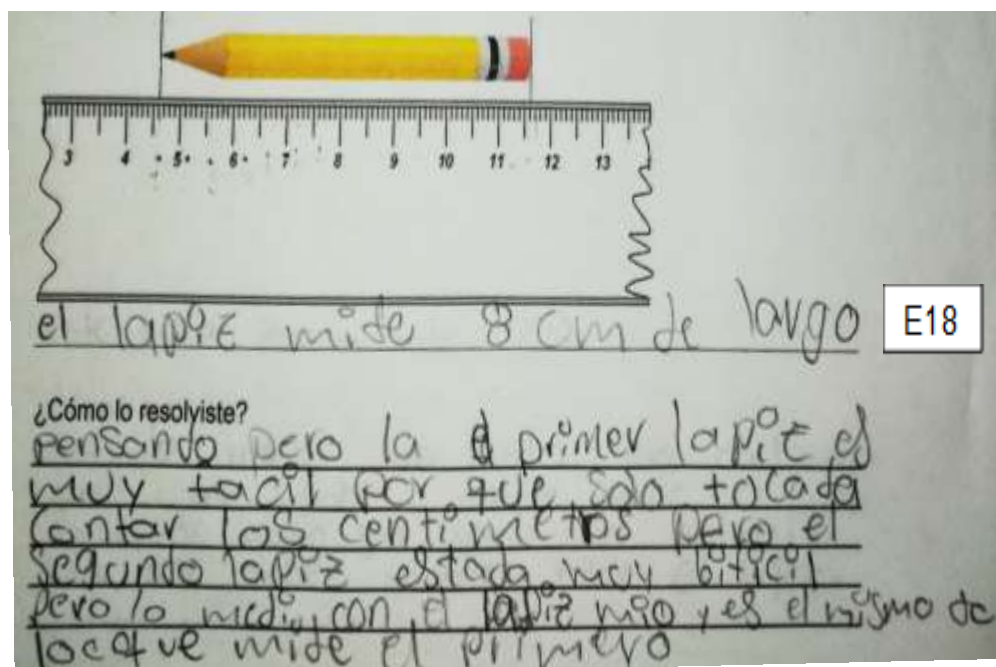 3 4 5 6 7 8 9 10 11 12 13
el lapiz mide 8 cm de largo
E18
¿Cómo lo resolviste?
pensando pero la primer lapiz es
muy facil por que solo tocada
contar los centimetros pero el
segundo lapiz estada muy biticil
pero lo medi con el lapiz mio y es el mismo de
loc que mide el primero